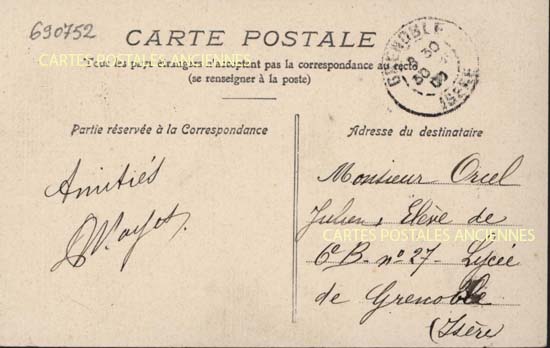 690752
CARTE POSTALE
CARTES POSTALES ANCIENNES
Tous les pays étrangers n'acceptent pas la correspondance au recto
(se renseigner à la poste)
GRENOBLE
ISÈRE
Partie réservée à la Correspondance
Adresse du destinataire
Amitiés
Monsieur Orcel
Julien, Elève de
CARTES POSTALES ANCIENNES
6e B. no 27- Lycée
de Grenoble
(Isère)